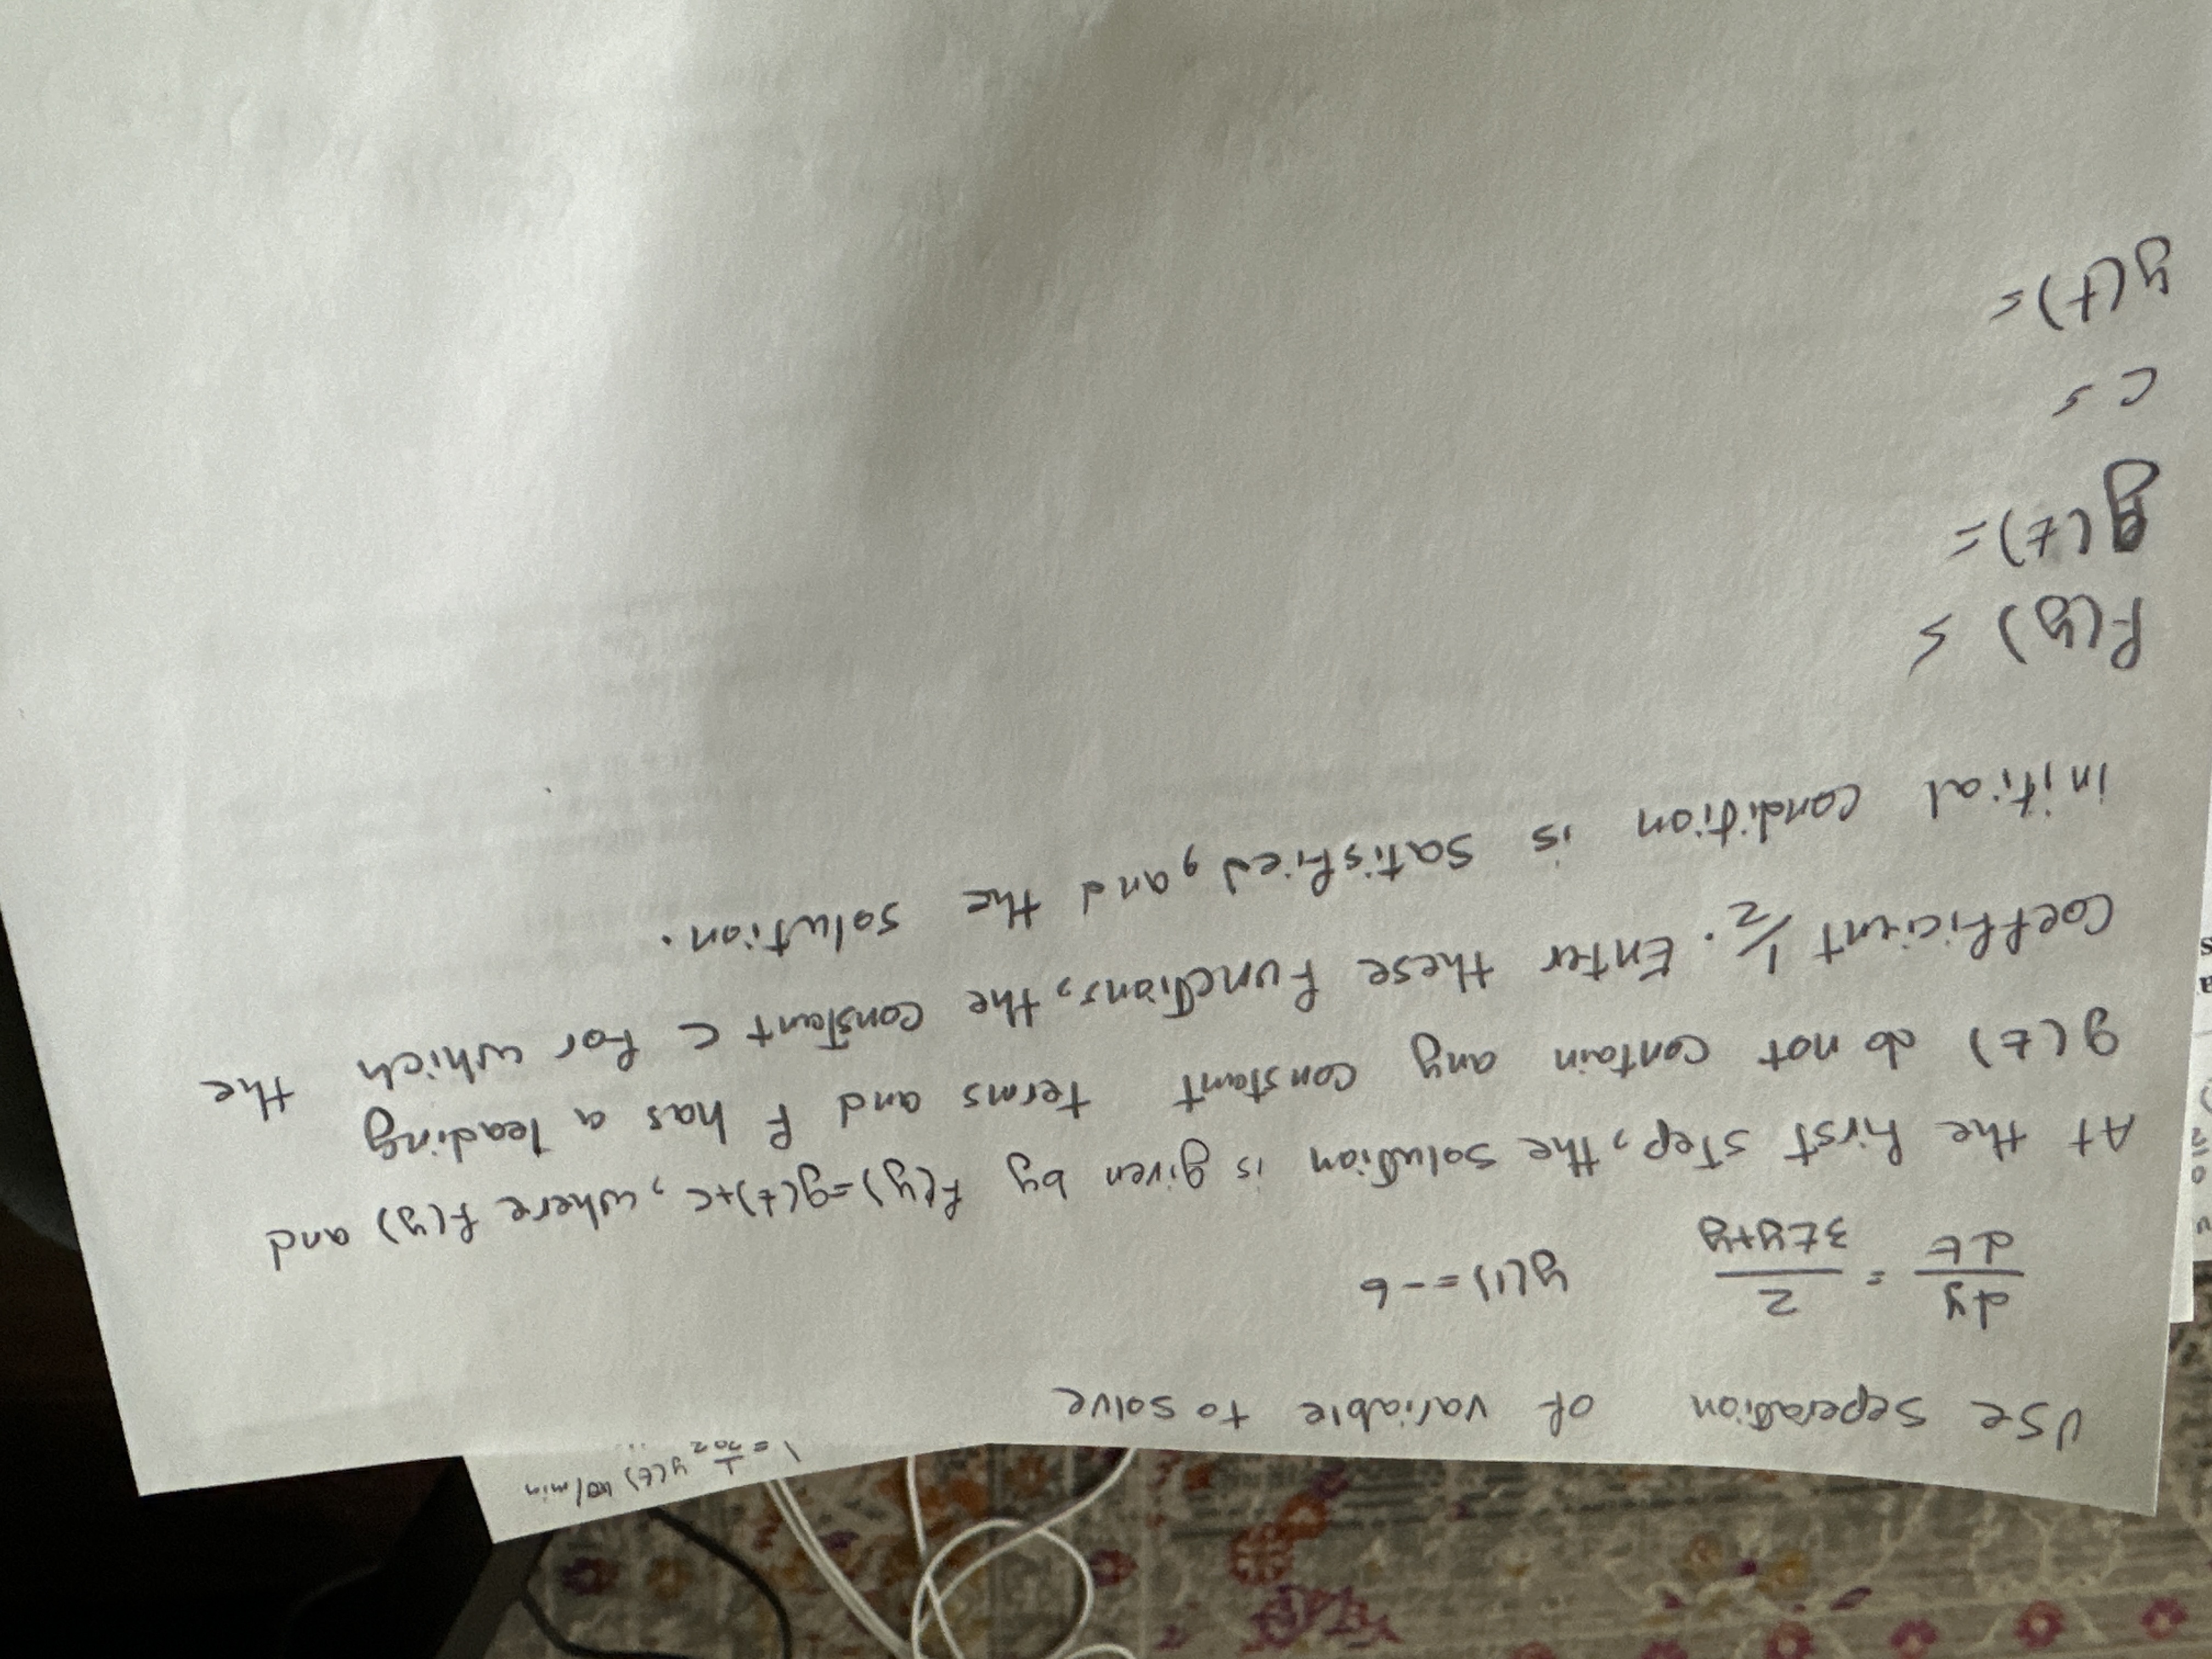 Use seperation of variable to solve
dy/dt = 2/3ty+y y(1)=-6
At the first step, the solution is given by f(y)=g(t)+c, where f(y) and
g(t) do not contain any constant terms and f has a leading
coefficient 1/2. Enter these functions, the constant c for which the
initial condition is satisfied, and the solution.
f(y) =
g(t)=
c =
y(t)=
y(t)
/min